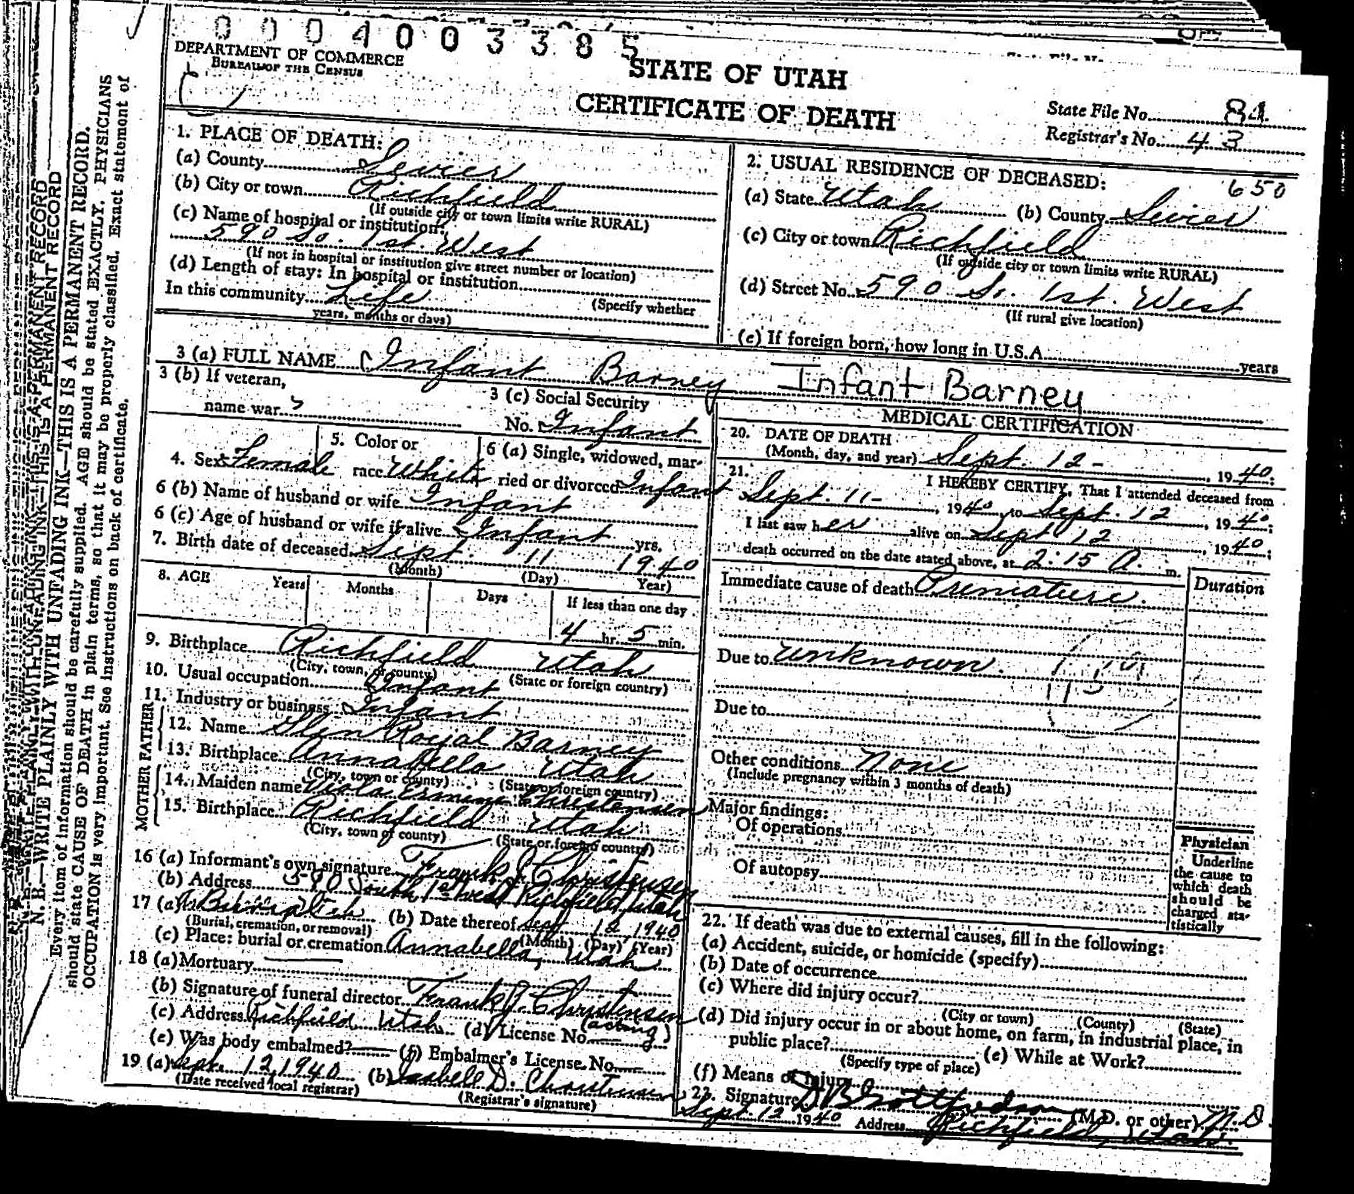 0 0 0 4 0 0 3 3 8 5
DEPARTMENT OF COMMERCE
BUREAU OF THE CENSUS
STATE OF UTAH
CERTIFICATE OF DEATH
State File No. 81
Registrar's No. 43
1. PLACE OF DEATH:
(a) County Sevier
(b) City or town Richfield
(If outside city or town limits write RURAL)
(c) Name of hospital or institution:
590 So. 1st. West
(If not in hospital or institution give street number or location)
(d) Length of stay: In hospital or institution
(Specify whether
In this community Life
years, months or days)
2. USUAL RESIDENCE OF DECEASED: 650
(a) State Utah (b) County Sevier
(c) City or town Richfield
(If outside city or town limits write RURAL)
(d) Street No. 590 So. 1st. West
(If rural give location)
(e) If foreign born, how long in U.S.A. years
3 (a) FULL NAME Infant Barney Infant Barney
3 (b) If veteran,
name war
3 (c) Social Security
No. Infant
4. Sex Female
5. Color or
race White
6 (a) Single, widowed, mar-
ried or divorced Infant
6 (b) Name of husband or wife Infant
6 (c) Age of husband or wife if alive Infant yrs.
7. Birth date of deceased Sept. 11 1940
(Month) (Day) Year)
8. AGE Years Months Days If less than one day
4 hr. 5 min.
9. Birthplace Richfield Utah
(City, town, or county) (State or foreign country)
10. Usual occupation Infant
11. Industry or business Infant
FATHER
12. Name Glen Royal Barney
13. Birthplace Annabella Utah
(City, town or county) (State or foreign country)
MOTHER
14. Maiden name Viola Ermine Christensen
15. Birthplace Richfield Utah
(City, town of county) (State or foreign country)
16 (a) Informant's own signature Frank J. Christensen
(b) Address 590 South 1st West Richfield, Utah
17 (a) Burial (b) Date thereof Sept 12 1940
(Burial, cremation, or removal) (Month) (Day) (Year)
(c) Place: burial or cremation Annabella, Utah
18 (a) Mortuary
(b) Signature of funeral director Frank J. Christensen
(acting)
(c) Address Richfield Utah (d) License No.
(e) Was body embalmed? (f) Embalmer's License No.
19 (a) Sept. 12, 1940 (b) Isabell D. Christensen
(Date received local registrar) (Registrar's signature)
MEDICAL CERTIFICATION
20. DATE OF DEATH
(Month, day, and year) Sept. 12 - , 1940.
21. I HEREBY CERTIFY, That I attended deceased from
Sept. 11 - , 1940 to Sept. 12 , 1940;
I last saw her alive on Sept 12 , 1940;
death occurred on the date stated above, at 2:15 A. m.
Duration
Immediate cause of death Premature.
Due to unknown.
Due to
Other conditions None
(Include pregnancy within 3 months of death)
Major findings:
Of operations
Of autopsy
Physician
Underline
the cause to
which death
should be
charged sta-
tistically
22. If death was due to external causes, fill in the following:
(a) Accident, suicide, or homicide (specify)
(b) Date of occurrence
(c) Where did injury occur?
(City or town) (County) (State)
(d) Did injury occur in or about home, on farm, in industrial place, in
public place? (e) While at Work?
(Specify type of place)
(f) Means of Injury
22. Signature D B Gottfredson (M.D. or other) M.D.
Sept 12 1940 Address Richfield, Utah
N.B.—WRITE PLAINLY WITH UNFADING INK—THIS IS A PERMANENT RECORD.
Every item of information should be carefully supplied. AGE should be stated EXACTLY. PHYSICIANS
should state CAUSE OF DEATH in plain terms, so that it may be properly classified. Exact statement of
OCCUPATION is very important. See instructions on back of certificate.